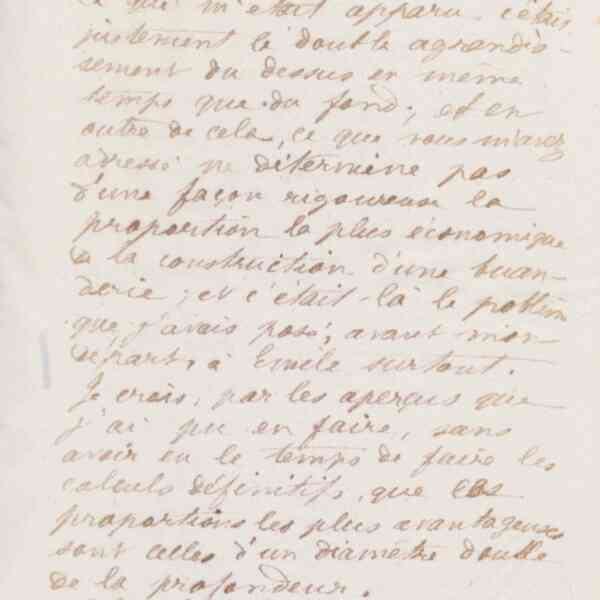 ce qui m'était apparu, c'était
justement le double agrandis-
sement du dessus en même
temps que du fond; et en
outre de cela, ce que vous m'avez
adressé ne détermine pas
d'une façon rigoureuse la
proportion la plus économique
à la construction d'une buan-
derie; et c'était là le problème
que j'avais posé, avant mon
départ, à Emile surtout.
Je crois, par les aperçus que
j'ai pu en faire, sans
avoir eu le temps de faire les
calculs définitifs, que les
proportions les plus avantageuses
sont celles d'un diamètre double
de la profondeur.